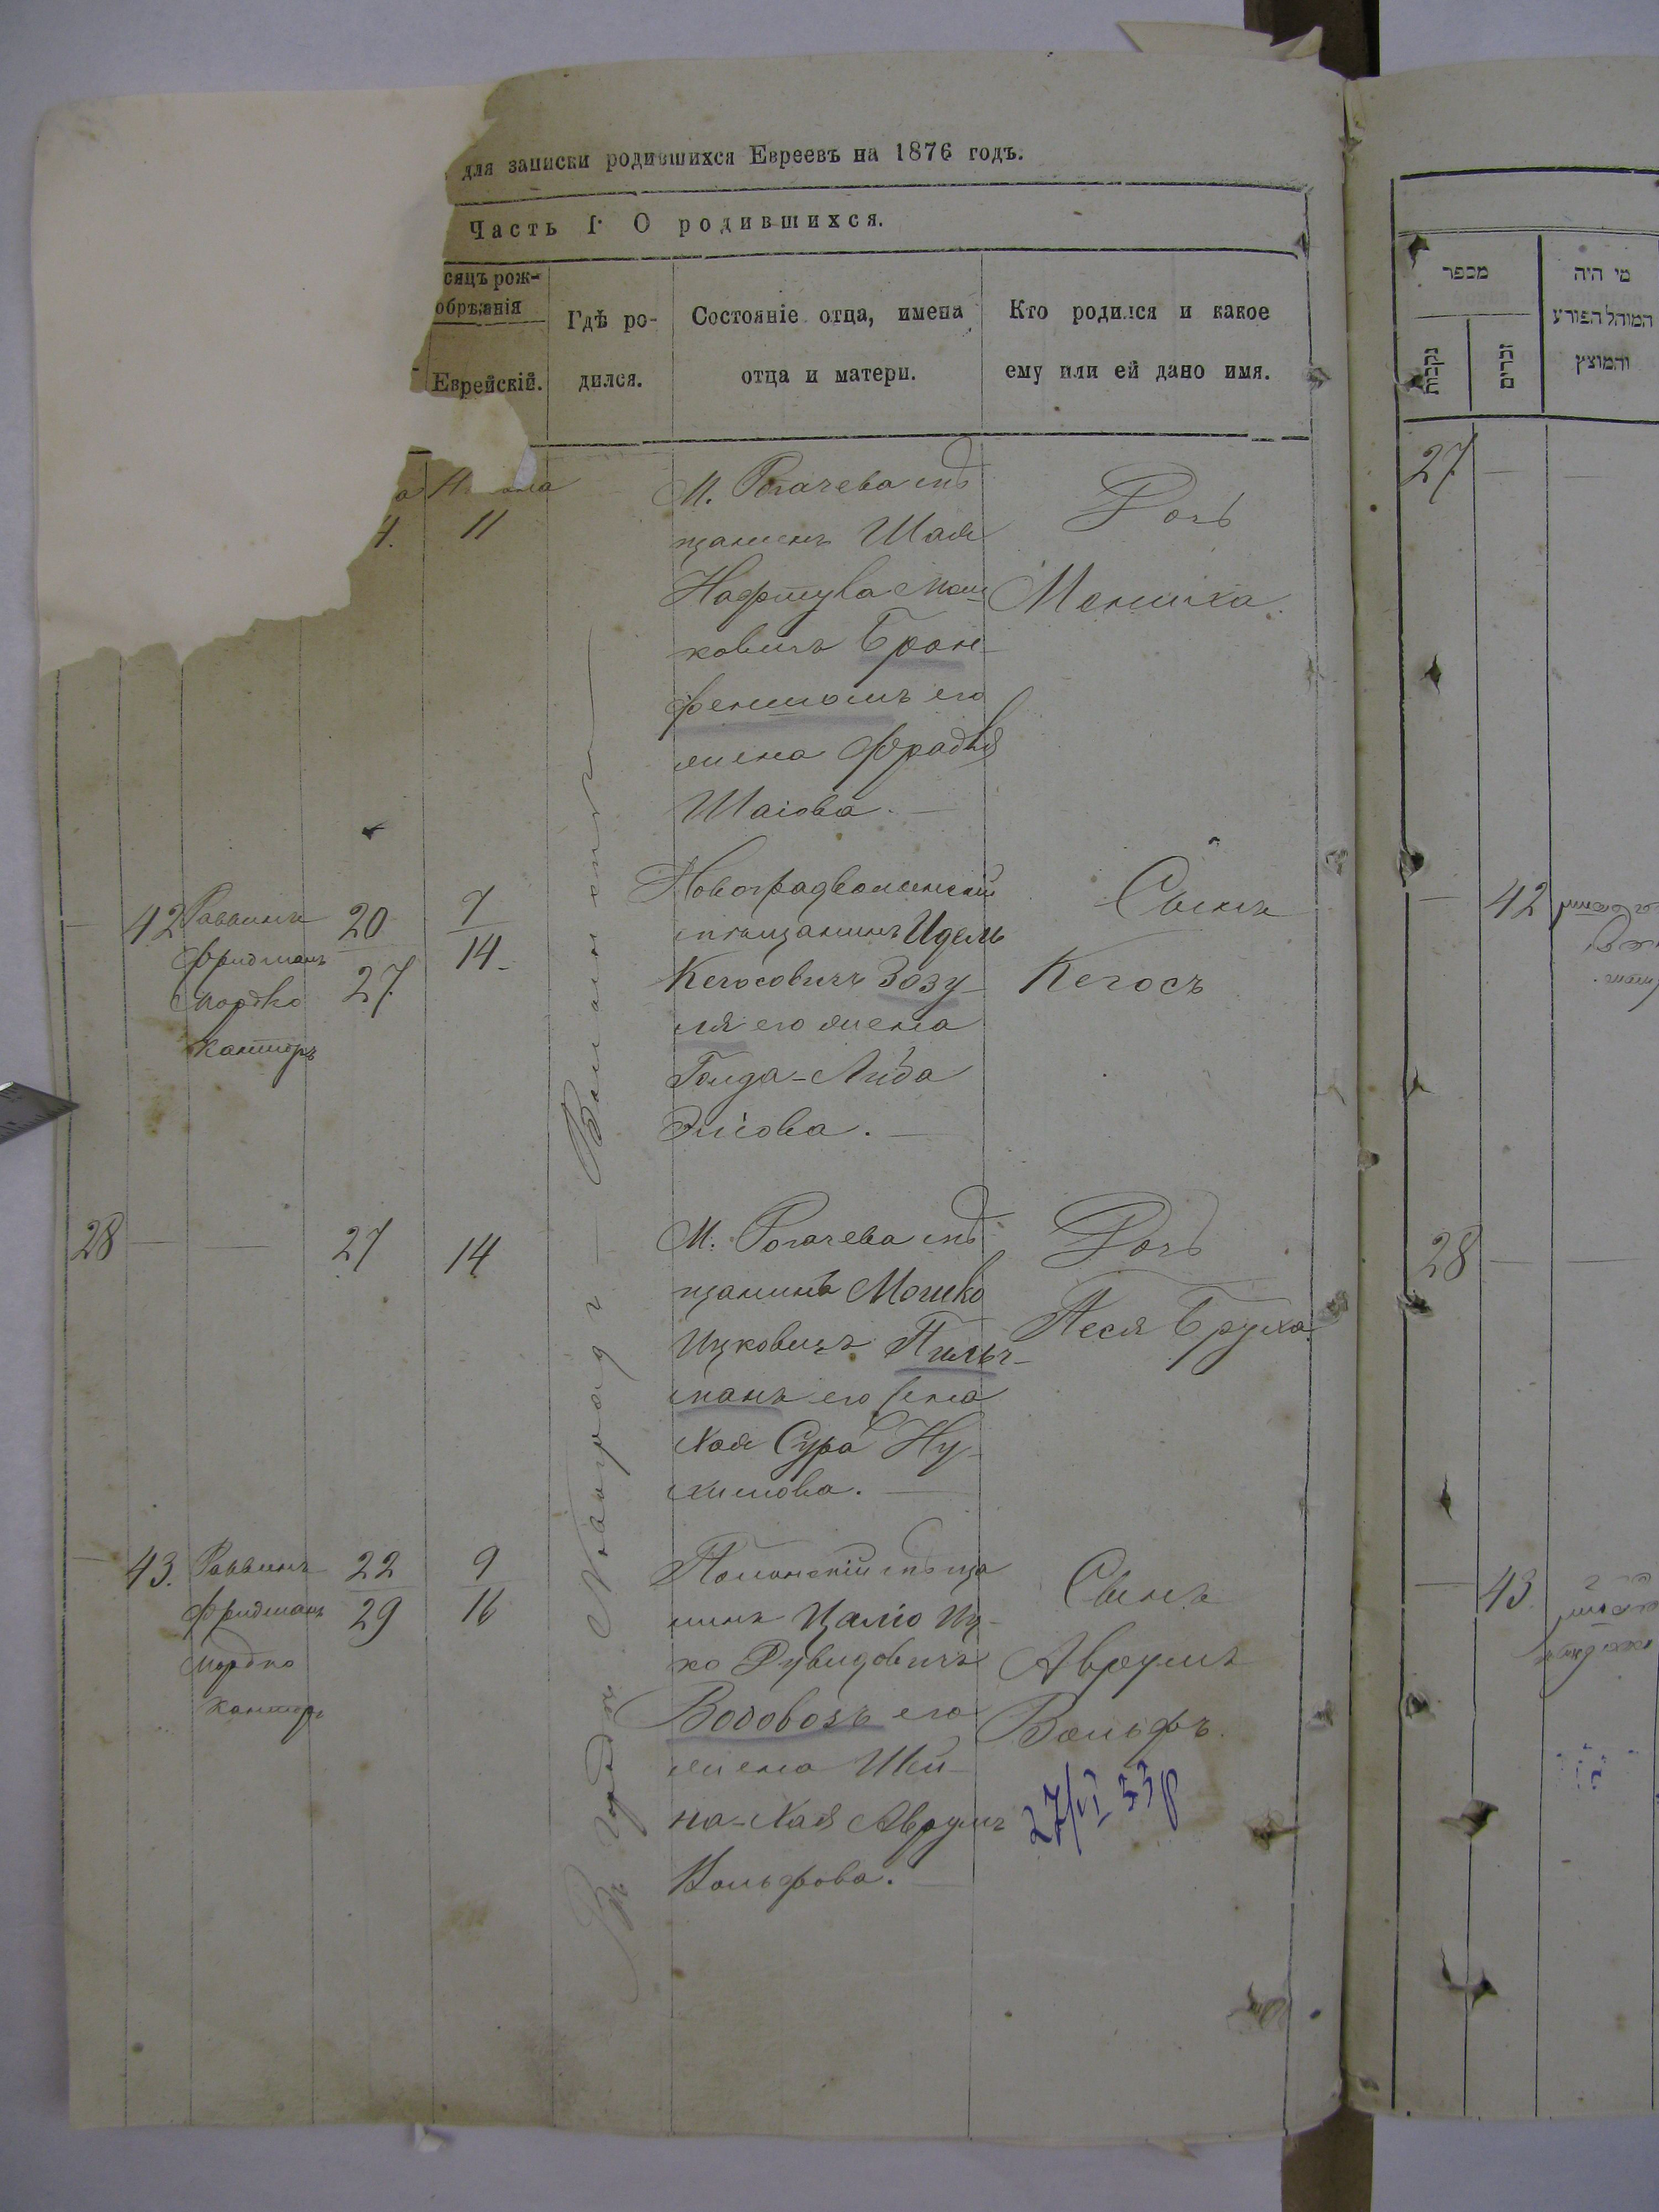 для записки родившихся Евреевъ на 1876 годъ.
Часть I. О родившихся.
сяцъ рож-
обрѣзанія
Еврейскій.
Гдѣ ро-
дился.
Состояніе отца, имена
отца и матери.
Кто родился и какое
ему или ей дано имя.
4.
11
М. Рогачева мѣ
щанинъ Шая
Нафтула Мош
ковичъ Брон
фенман его
жена Фрадля
Шаіова.
Дочь
Маниха.
42
Раввинъ
Фридманъ
Мордко
Канторъ
20
27.
7
14.
Новоградволынскій
мѣщанинъ Идель
Кегосовичъ Зозу
ля его жена
Голда-Либа
Эліова.
Сынъ
Кегосъ
28
27
14
М. Рогачева мѣ
щанинъ Мошко
Ицковичъ Пильч-
манъ его жена
Хая Сура Ну
химова.
Дочь
Песя Бруха.
43.
Раввинъ
Фридманъ
Мордко
Канторъ
22
29
9
16
мѣща
нинъ Цаліо Иц-
ко Рувидовичъ
Водовозъ его
жена Шей-
на-Хая Аврумъ
Вольфова.
Сынъ
Аврумъ
Вольфъ.
27/VI 33р
Въ городѣ Новоградъ-Волынскъ
מספר
נקבות
זכרים
מי היה
המוהל הפורע
והמוצץ
27
42
28
43